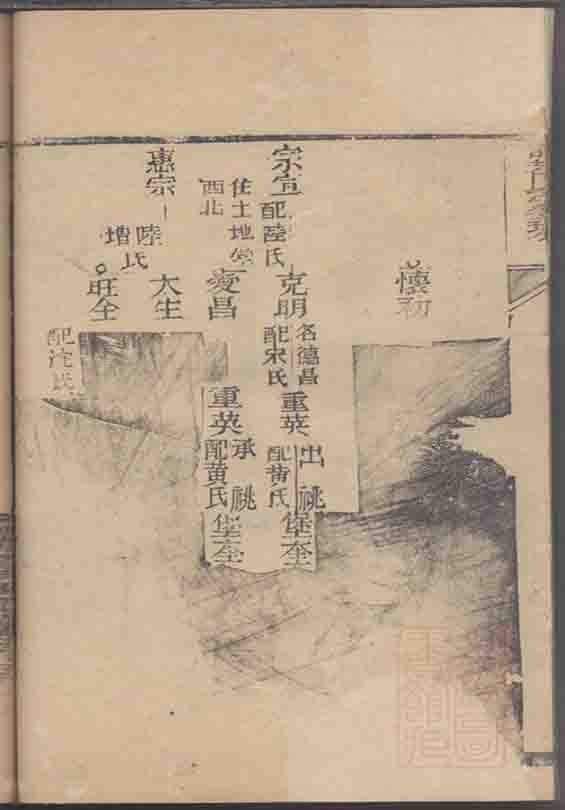 懷初
宗宣
配陸氏
克明
名德昌
配宋氏
重英
出祧
配黄氏
堡奎
住土地堂
西北
愛昌
重英
承祧
配黄氏
堡奎
惠宗
陸氏
大生
增氏
旺全
配沈氏